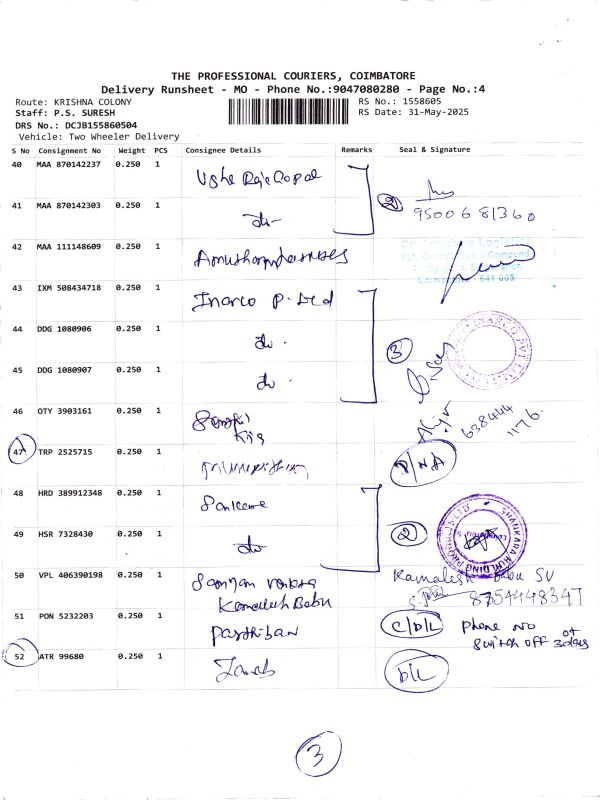 THE PROFESSIONAL COURIERS, COIMBATORE
Delivery Runsheet - MO - Phone No.:9047080280 - Page No.:4
Route: KRISHNA COLONY
RS No.: 1558605
Staff: P.S. SURESH
RS Date: 31-May-2025
DRS No.: DCJB155860504
Vehicle: Two Wheeler Delivery
S No Consignment No Weight PCS Consignee Details Remarks Seal & Signature
40 MAA 870142237 0.250 1
2
9500681360
41 MAA 870142303 0.250 1 do-
42 MAA 111148609 0.250 1
43 IXM 508434718 0.250 1 Inarco P-Ltd
44 DDG 1080906 0.250 1 do-
INARCO PVT
3
45 DDG 1080907 0.250 1 do-
46 OTY 3903161 0.250 1
638444
1176
47 TRP 2525715 0.250 1 D/NA
48 HRD 389912348 0.250 1
49 HSR 7328430 0.250 1 do 2
SHANKARA BUILDING PRODUCTS LTD
50 VPL 406390198 0.250 1
Kamalesh Babu SV
Kamalesh Babu
8754448347
51 PON 5232203 0.250 1 Parthiban C/D/L Phone no
switch off 3days
52 ATR 99680 0.250 1 D/L
3